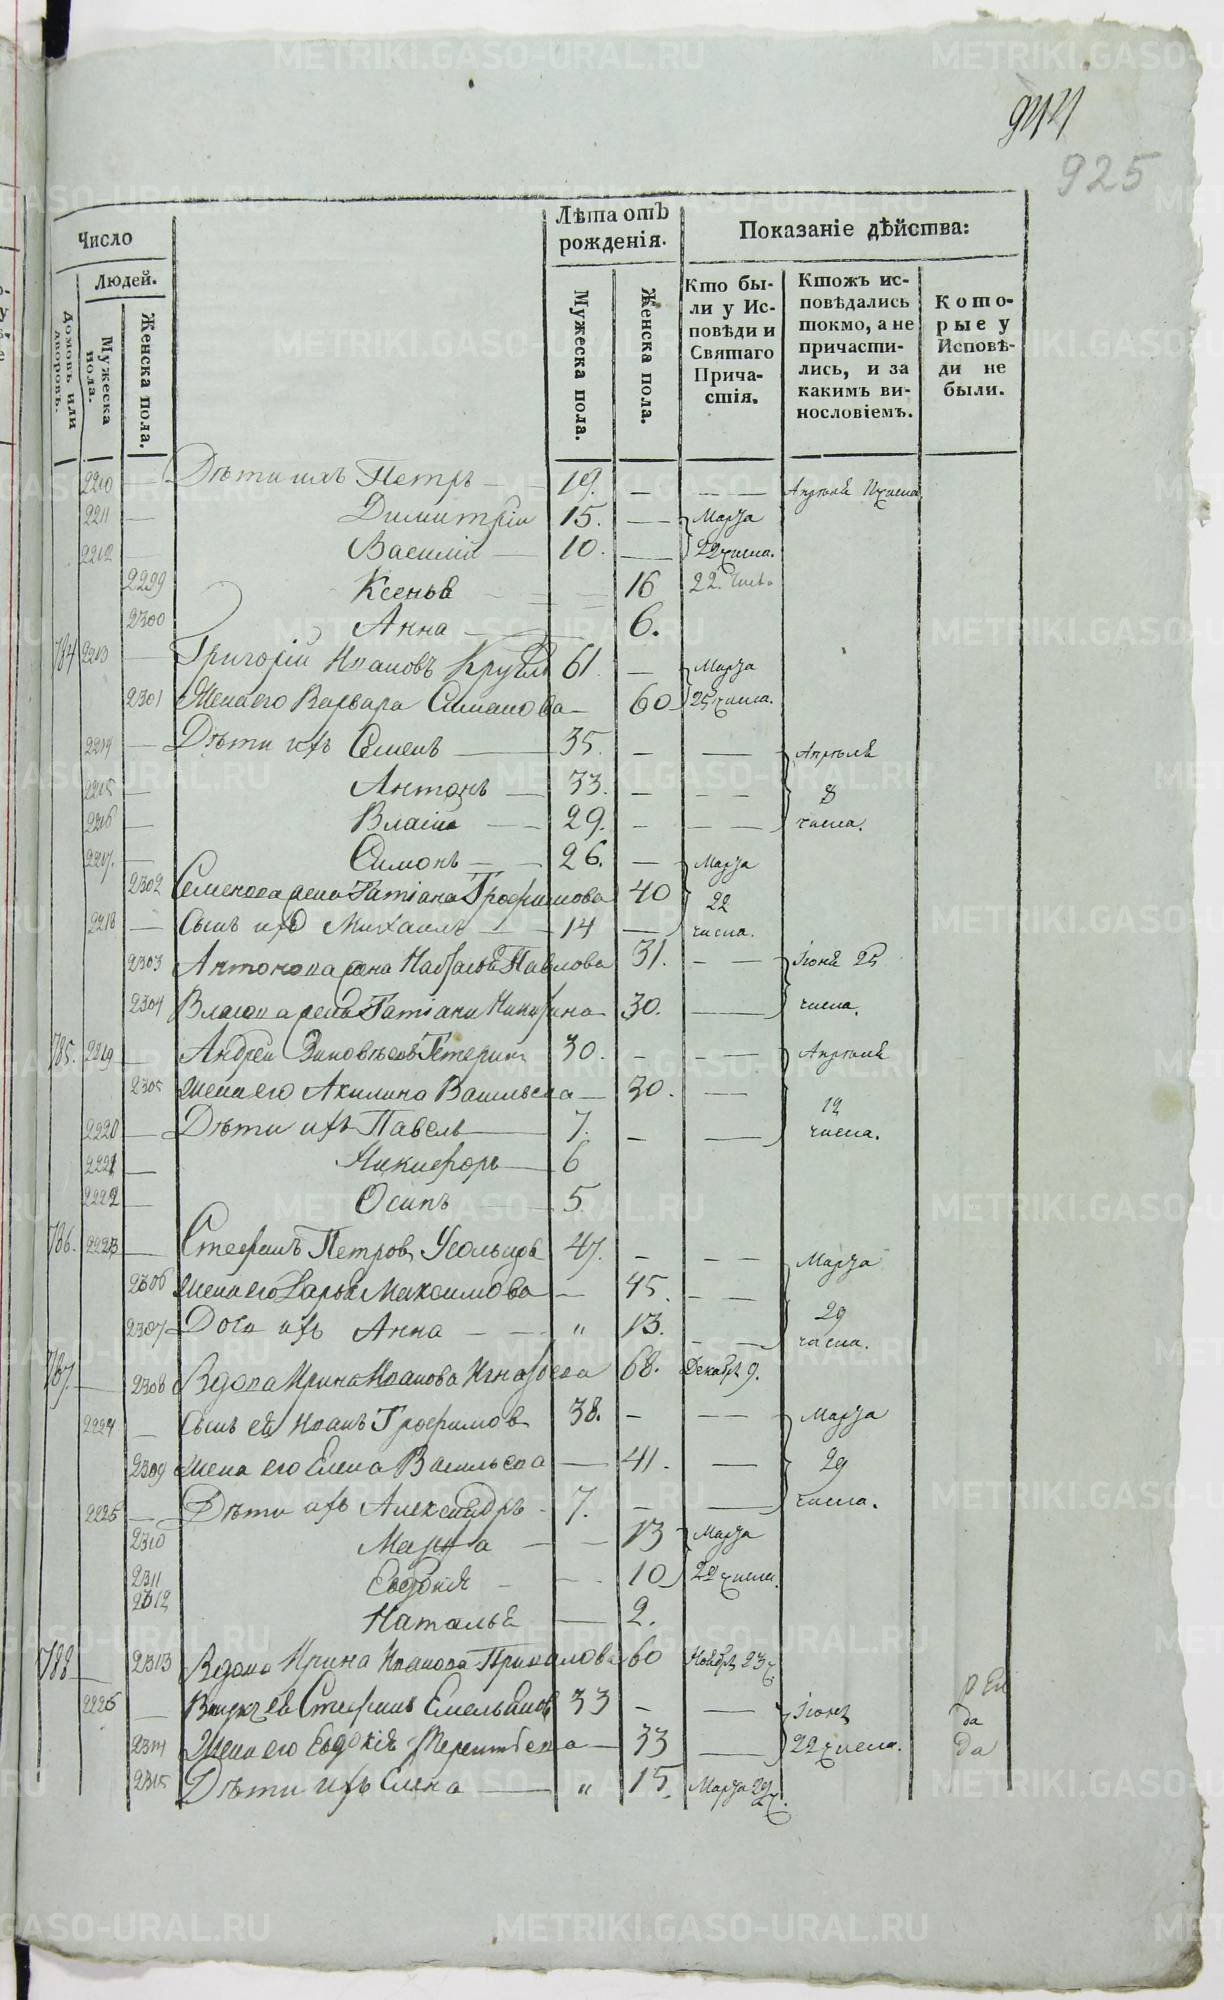 944
925
Число
Людей.
Домовъ или дворовъ.
Мужеска пола.
Женска пола.
Лѣта отъ рожденія.
Мужеска пола.
Женска пола.
Показаніе дѣйства:
Кто бы-
ли у Ис-
повѣди и
Святаго
Прича-
стія.
Ктожъ ис-
повѣдались
токмо, а не
причасти-
лись, и за
какимъ ви-
нословіемъ.
Кото-
рые у
Исповѣ-
ди не
были.
2210 — Дѣти ихъ Петръ — 19. — — —
2211 — Димитрій 15. — Марта
2212 — Василій — 10. — 22 числа.
2299 Ксенья 16 22.
2300 Анна — 6.
784 2213 — Григорій Ивановъ 61. — Марта
2301 Жена его Варвара Симанова — 60 25 числа.
2214 — Дѣти ихъ Семенъ — 35. — — Апрѣля
2215 — Антонъ — 33. — — — 8
2216 — Власій — 29. — — — числа.
2217. — Симонъ — 26. — Марта
2302 Семенова жена Татіана Трофимова 40 22
2218 — Сынъ ихъ Михаилъ — 14 — числа.
2303 Антонова жена Настасья Павлова 31. — — Іюня 25
2304 Власова жена Татіана Никитина 30. — числа.
785. 2219 — Андрей Зиновьевъ 30. — — — Апрѣля
2305 Жена его Акилина Васильева — 30. — 12
2220 — Дѣти ихъ Павелъ — 7. — — числа.
2221 — Никифоръ — 6
2222 — Осипъ — 5.
786. 2223 — Стефанъ Петровъ Усольцовъ 47. — —
Марта
2306 Жена его Дарья Максимова — 45. — —
29
2307 Дочь ихъ Анна — — " 13. — —
числа.
787. — 2308 Вдова Ирина Иванова Игнатьева 68. Декабря 9.
2224 — Сынъ ей Иванъ Трофимовъ 38. — — — Марта
2309 Жена его Елена Васильева — 41. — 29
2225 — Дѣти ихъ Александръ — 7. — — числа.
2310 Марѳа — — 13 Марта
2311 Евдокія — — 10 22 числа.
2312 Наталья — 2.
788 — 2313 Вдова Ирина Иванова 60 Ноября 23
2226 — Внукъ ея Стефанъ Емельяновъ 33 — — Іюня
да
2314 Жена его Евдокія Терентьева — 33 — 22 числа.
да
2315 Дѣти ихъ Елена — " 15. Марта